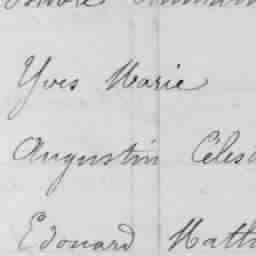 Yves Marie
Augustin Céles
Edouard Math